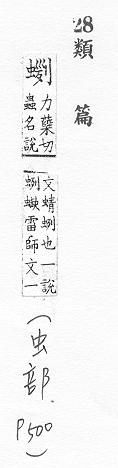 28類篇
蛚
力櫱切
蟲名說
文蜻蛚也一說
蛚蚗雷師文一
(虫部.P500)